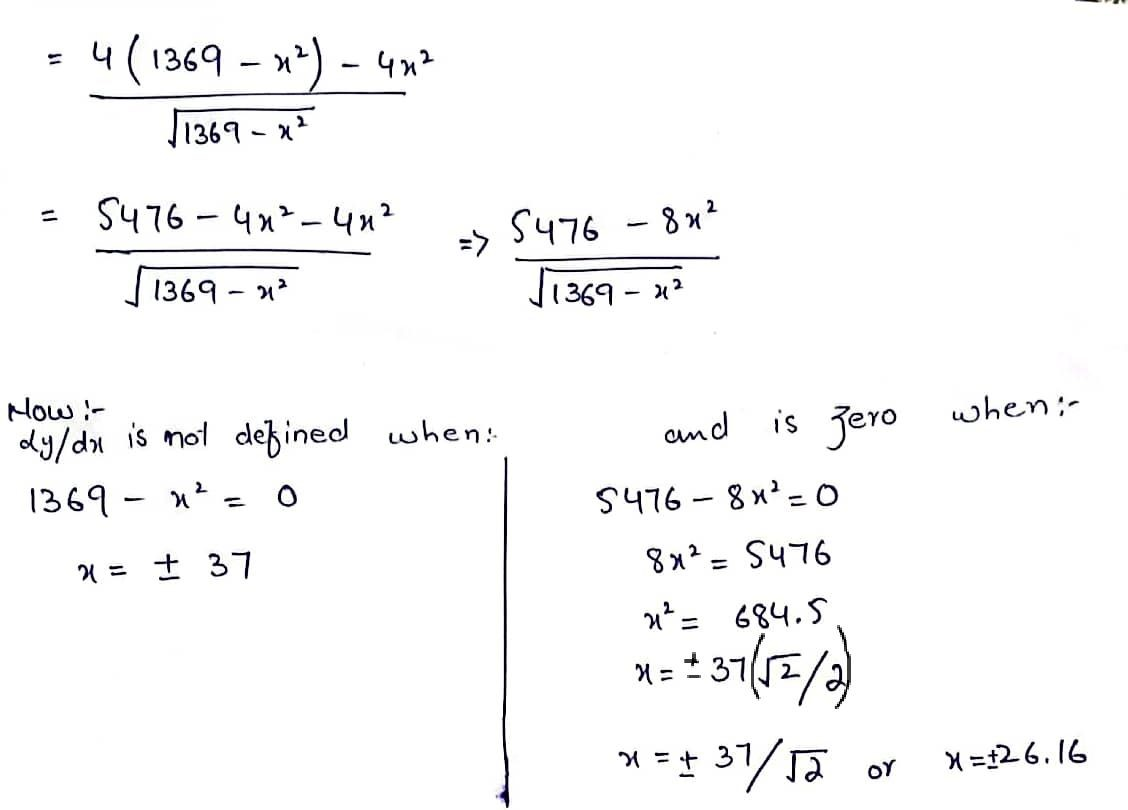 = 4(1369 – x²) – 4x²
√1369 – x²
= 5476 – 4x² – 4x² => 5476 – 8x²
√1369 – x² √1369 – x²
Now :-
dy/dx is not defined when:-
1369 – x² = 0
x = ± 37
and is zero when:-
5476 – 8x² = 0
8x² = 5476
x² = 684.5
x = ± 37(√2/2)
x = ± 37/√2 or x = ±26.16